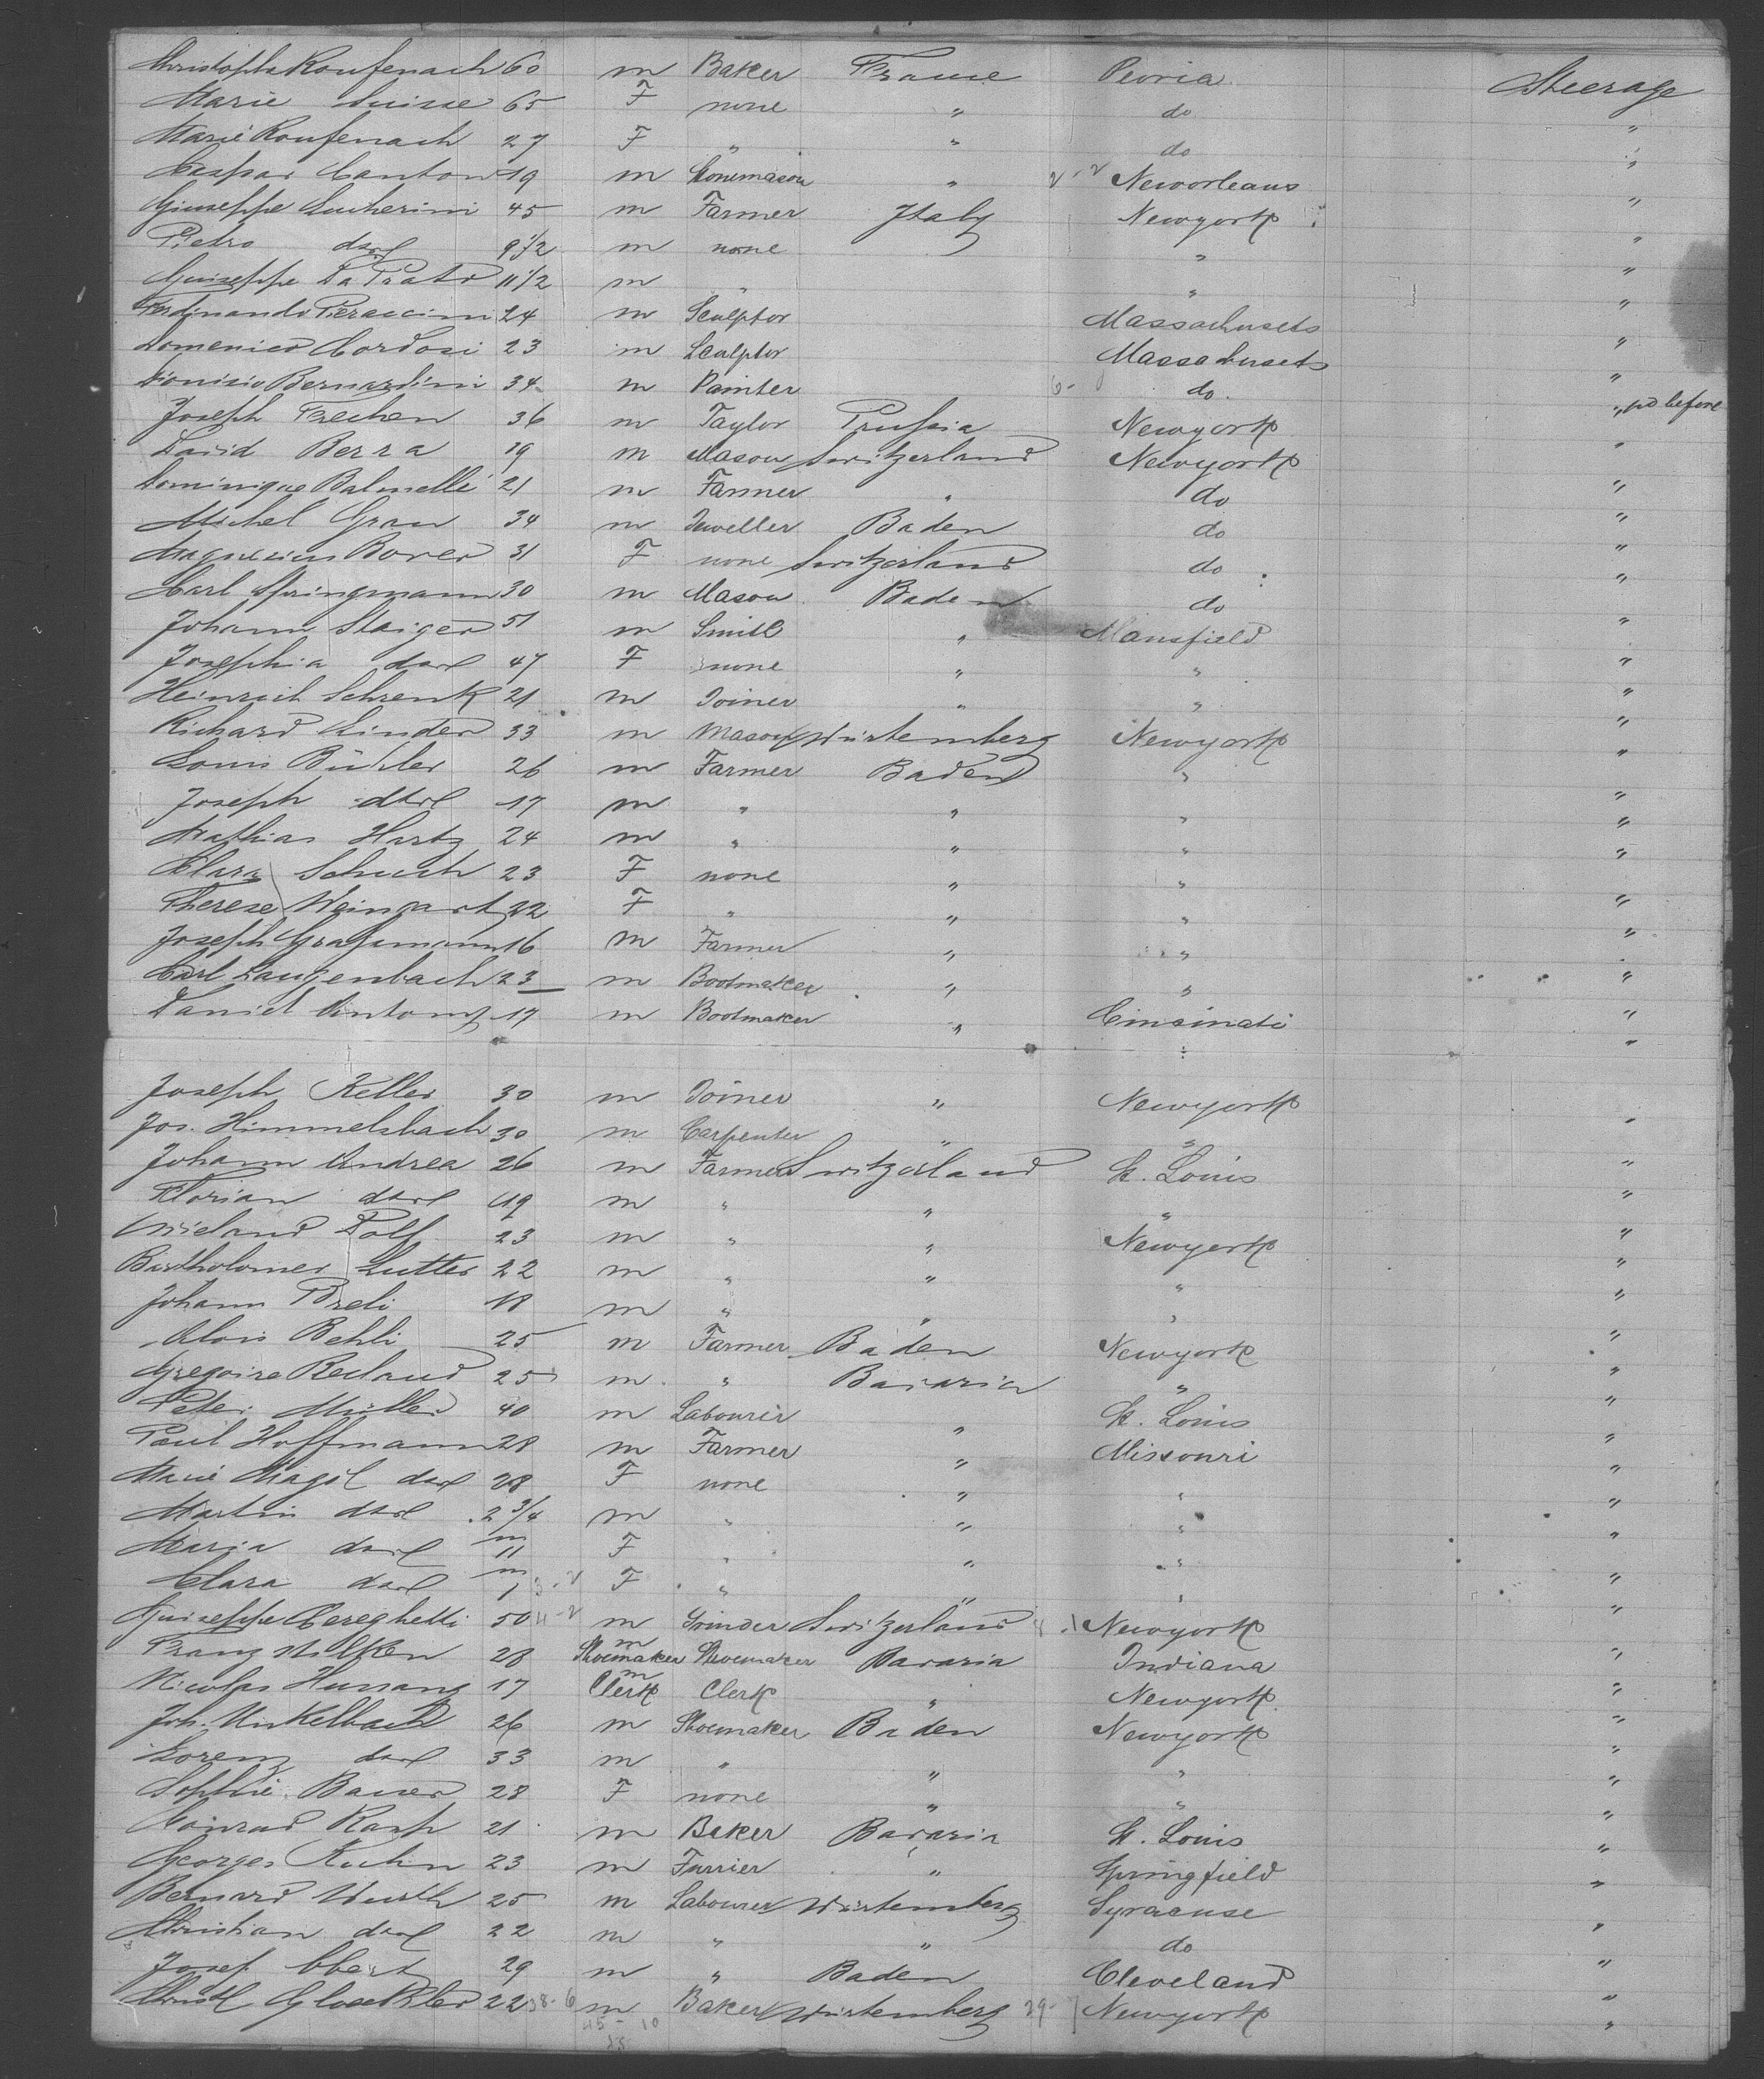 Christophe Koufenach 60 m Baker France Peoria Steerage
Marie Suisse 65 F none " do "
Marie Koufenach 27 F " " do "
Caspar Canton 19 m Stonemason " Neworleans "
Giuseppe Lucherini 45 m Farmer Italy Newyork "
Pietro dsrl 9 1/2 m none " "
Guiseppe Da Prato 11 1/2 m " " "
Ferdinando Pieraccini 24 m Sculptor Massachusets "
Domenico Cordosi 23 m Sculptor Massachusets "
Dionisio Bernardini 34 m Painter do. "
Joseph Frechen 36 m Taylor Prussia Newyork " as before
David Berra 19 m Mason Switzerland Newyork "
Dominique Balmelli 21 m Farmer " do "
Michel Grau 34 m Jeweller Baden do "
Borer 31 F none Switzerland do "
Carl Springmann 30 m Mason Baden do "
Johann Staiger 51 m Smith " Mansfield "
Josephia dsrl 47 F none " " "
Heinrich Schrenk 21 m Joiner " " "
Richard Linder 33 m Mason Würtemberg Newyork "
Louis Bühler 26 m Farmer Baden " "
Joseph dsrl 17 m " " " "
Mathias Hartz 24 m " " " "
Clara Schuch 23 F none " " "
Therese Weingart 22 F " " " "
Joseph Grassmann 16 m Farmer " " "
Carl Langenbach 23 m Bootmaker " " "
Daniel Antony 17 m Bootmaker " Cincinati "
Joseph Keller 30 m Joiner " Newyork "
Jos. Himmelsbach 30 m Carpenter " " "
Johann Andrea 26 m Farmer Switzerland St. Louis "
Florian dsrl 19 m " " " "
Wieland Dolf 23 m " " Newyork "
Bartholomer Lutter 22 m " " " "
Johann Breli 18 m " " " "
Alois Behli 25 m Farmer Baden Newyork "
Gregoire Reclaud 25 m " Bavaria " "
Peter Müller 40 m Labourer " St. Louis "
Paul Hoffmann 28 m Farmer " Missouri "
Marie Magd dsrl 28 F none " " "
Martin dsrl 2 3/4 m " " " "
Maria dsrl 11 m F " " " "
Clara dsrl 1 m F " " " "
Guiseppe Cereghetti 50 m Grinder Switzerland Newyork "
Franz Wilken 28 m Shoemaker Shoemaker Bavaria Indiana "
Nicolas Hussang 17 m Clerk Clerk " Newyork "
Joh. Unkelbach 26 m Shoemaker Baden Newyork "
Lorenz dsrl 33 m " " " "
Sophie Bauer 28 F none " " "
Conrad Rash 21 m Baker Bavaria St. Louis "
Georges Kuhn 23 m Furrier " Springfield "
Bernard Wurth 25 m Labourer Würtemberg Syracuse "
Christian dsrl 22 m " " do "
Josef Ebert 29 m " Baden Cleveland "
Christ Gloeckler 22 38-6 m Baker Würtemberg 29- Newyork "
45-10